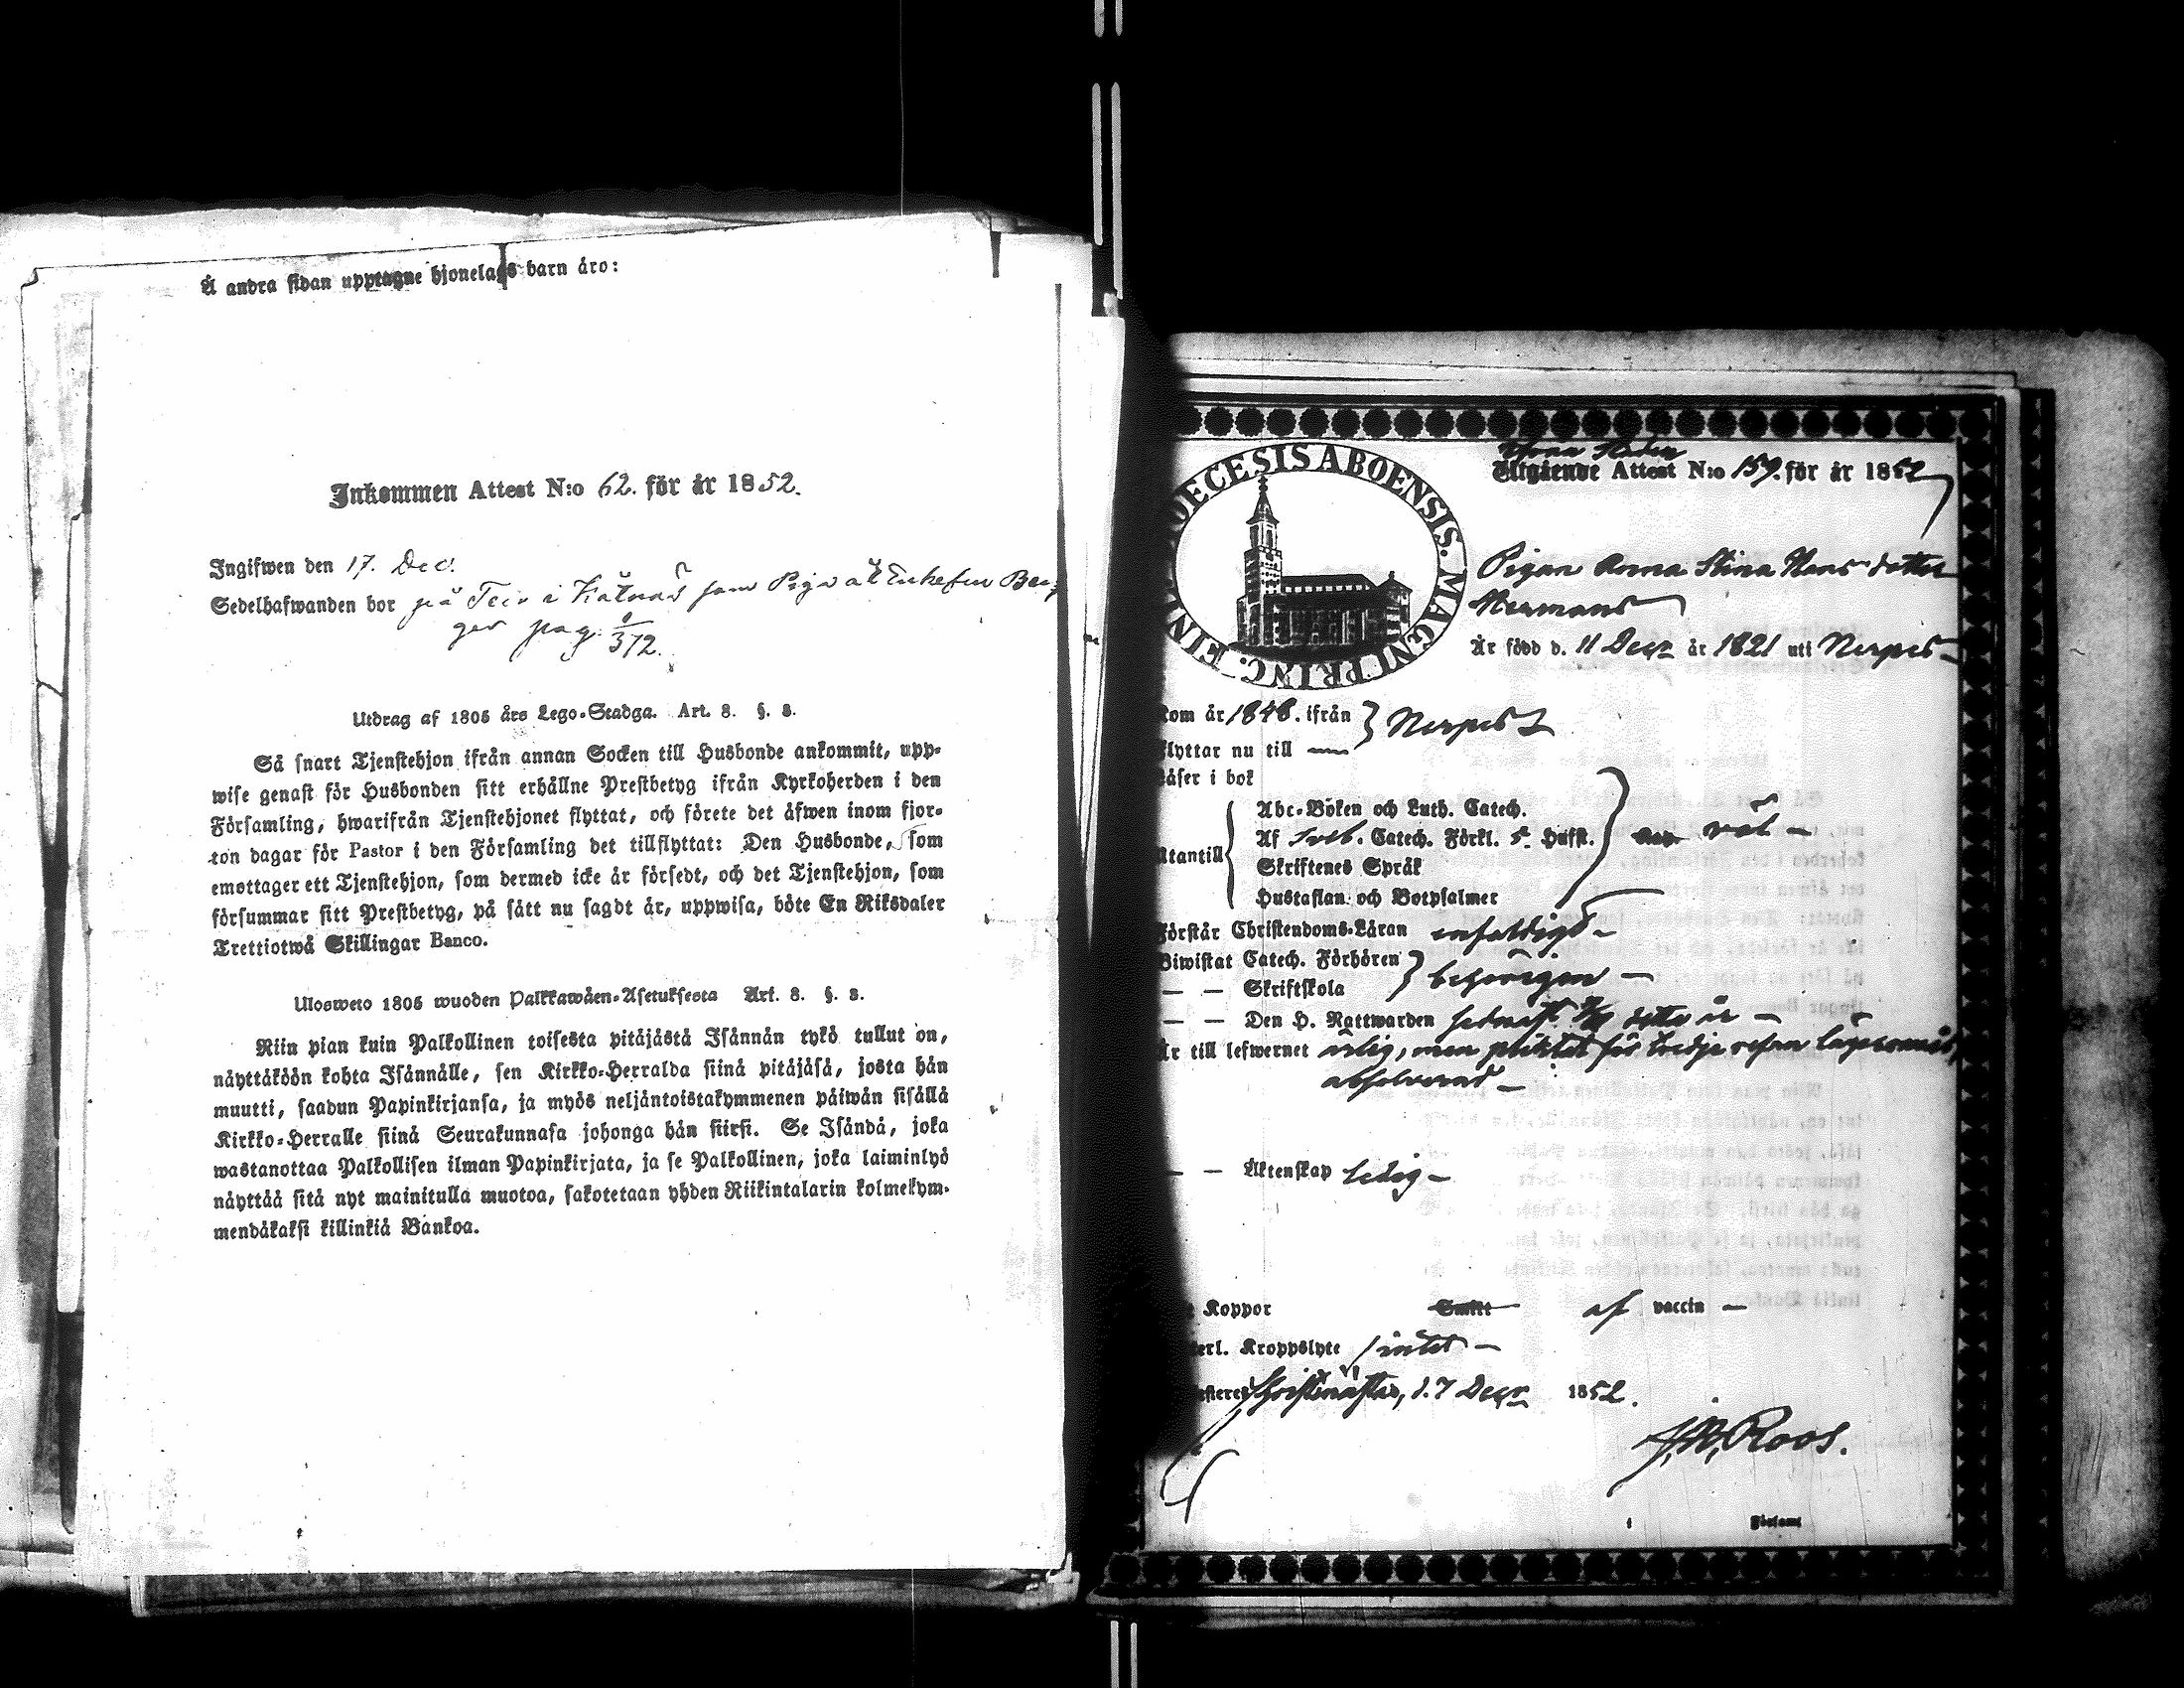 Å andra sidan upptagne hjonelags barn äro:
Inkommen Attest N:o 62. för år 1852.
Ingifwen den 17. Dec.
Sedelhafwanden bor på Teir i Kåtnäs som Piga åt Enkefru Ber
ger pag. 372.
Utdrag af 1805 års Lego-Stadga. Art. 8. §. 8.
Så snart Tjenstehjon ifrån annan Socken till Husbonde ankommit, upp-
wise genast för Husbonden sitt erhållne Prestbetyg ifrån Kyrkoherden i den
Församling, hwarifrån Tjenstehjonet flyttat, och förete det äfwen inom fjor-
ton dagar för Pastor i den Församling det tillflyttat: Den Husbonde, som
emottager ett Tjenstehjon, som dermed icke är försedt, och det Tjenstehjon, som
försummar sitt Prestbetyg, på sätt nu sagdt är, uppwisa, böte En Riksdaler
Trettiotwå Skillingar Banco.
Ulosweto 1805 wuoden Palkkawäen-Asetuksesta Art. 8. §. 8.
Niin pian kuin Palkollinen toisesta pitäjästä Isännän tykö tullut on,
näyttäköön kohta Isännälle, sen Kirkko-Herralda siinä pitäjäsä, josta hän
muutti, saadun Papinkirjansa, ja myös neljäntoistakymmenen päiwän sisällä
Kirkko-Herralle siinä Seurakunnasa johonga hän siirsi. Se Isändä, joka
wastanottaa Palkollisen ilman Papinkirjata, ja se Palkollinen, joka laiminlyö
näyttää sitä nyt mainitulla muotoa, sakotetaan yhden Riikintalarin kolmekym-
mendäkaksi killinkiä Bankoa.
FINL. DECESIS ABOENSIS. MAGNI PRINC.
Utgående Attest N:o 159. för år 1852
Pigan Anna Stina Hansdotter
Hermans
Är född d. 11 Decr år 1821 uti Nerpes
kom år 1848. ifrån } Nerpes
flyttar nu till
läser i bok
Abc-Boken och Luth. Catech.
Utantill Af Sveb. Catech. Förkl. 5 Hufst. väl
Skriftenes Språk
Hustaflan och Botpsalmer
Förstår Christendoms-Läran enfaldigt
Biwistat Catech. Förhören } behörigen
— — Skriftskola
— — Den H. Nattwarden sednast detta år
Är till lefwernet ärlig, men pliktat för tredje resan lägersmål,
absolverad
— — Äktenskap ledig
Koppor Smitt af vaccin
terl. Kroppslyte intet
esteret Christinæstad, d. 7 Decr 1852.
J. W. Roos.
Förlamt